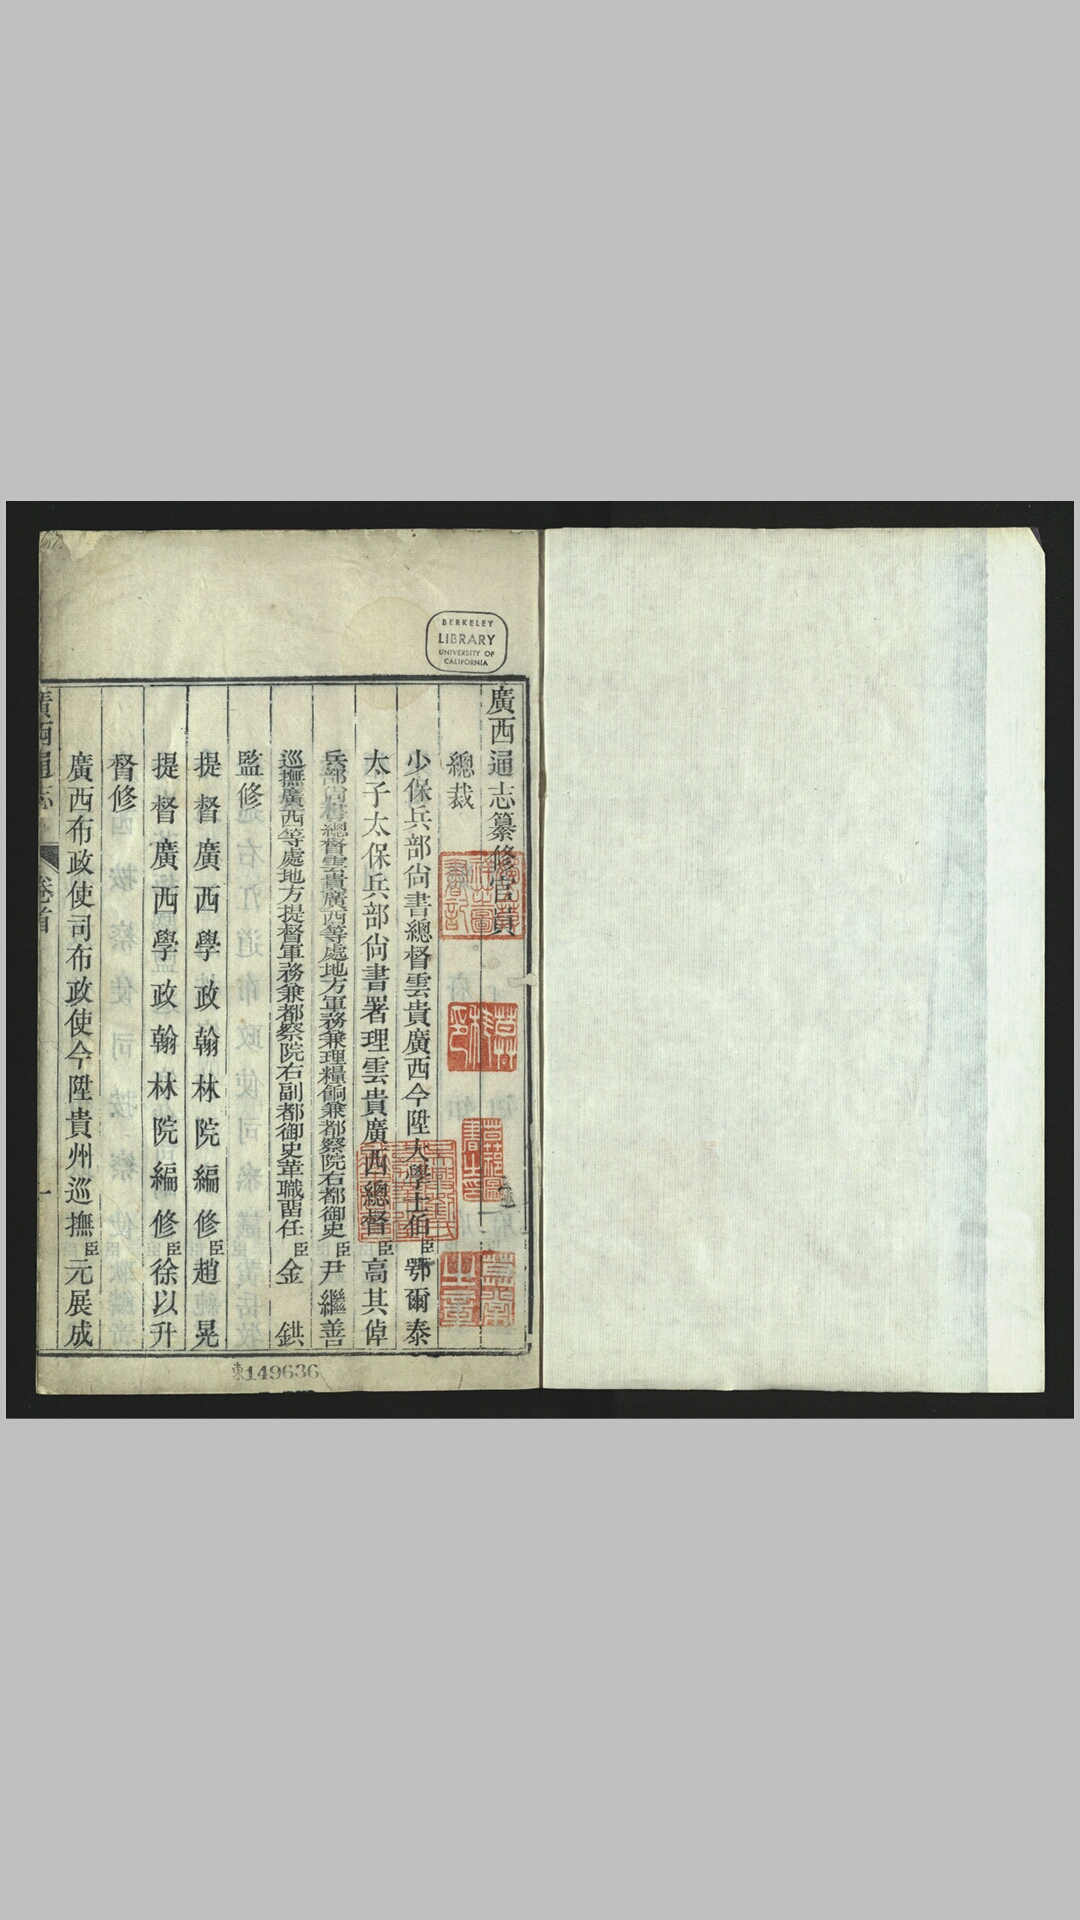 BERKELEY
LIBRARY
UNIVERSITY OF
CALIFORNIA
廣西通志纂修官員
總裁
少保兵部尙書總督雲貴廣西今陞大學士伯臣鄂爾泰
太子太保兵部尙書署理雲貴廣西總督臣高其倬
兵部尙書總督雲貴廣西等處地方軍務兼理糧餉兼都察院右都御史臣尹繼善
巡撫廣西等處地方提督軍務兼都察院右副都御史革職畱任臣金鉷
監修
提督廣西學政翰林院編修臣趙晃
提督廣西學政翰林院編修臣徐以升
督修
廣西布政使司布政使今陞貴州巡撫臣元展成
廣西通志
卷首
一
東149636